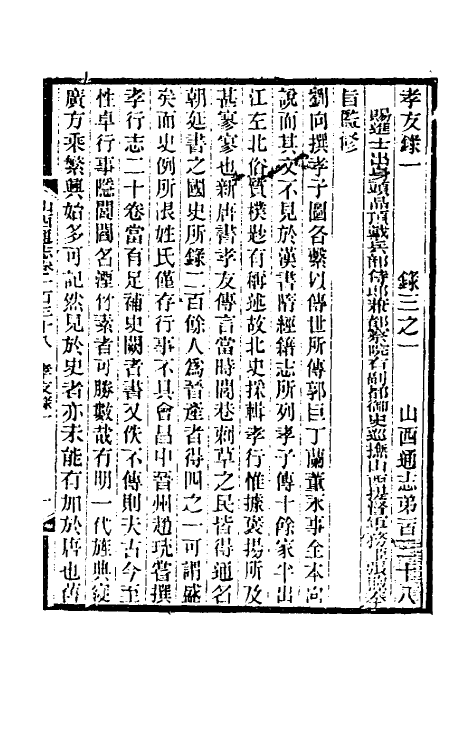 孝友錄一　錄三之一　山西通志弟百三十八
賜進士出身頭品頂戴兵部侍郎兼都察院右副都御史巡撫山西提督軍務
旨監修
劉向撰孝子圖各繫以傳世所傳郭巨丁蘭董永事全本向
說而其文不見於漢書隋經籍志所列孝子傳十餘家半出
江左北俗質樸尠有稱述故北史採輯孝行惟據褒揚所及
甚寥寥也新唐書孝友傳言當時閭巷刺草之民皆得通名
朝廷書之國史所錄二百餘人爲晉產者得四之一可謂盛
矣而史例所限姓氏僅存行事不具會昌中晉州趙珫嘗撰
孝行志二十卷當有足補史闕者書又佚不傳則夫古今至
性卓行事隱閭閻名湮竹素者可勝數哉有明一代旌典寖
廣方乘繁興始多可記然見於史者亦未能有加於唐也舊
山西通志卷一百三十八　孝友錄一　一